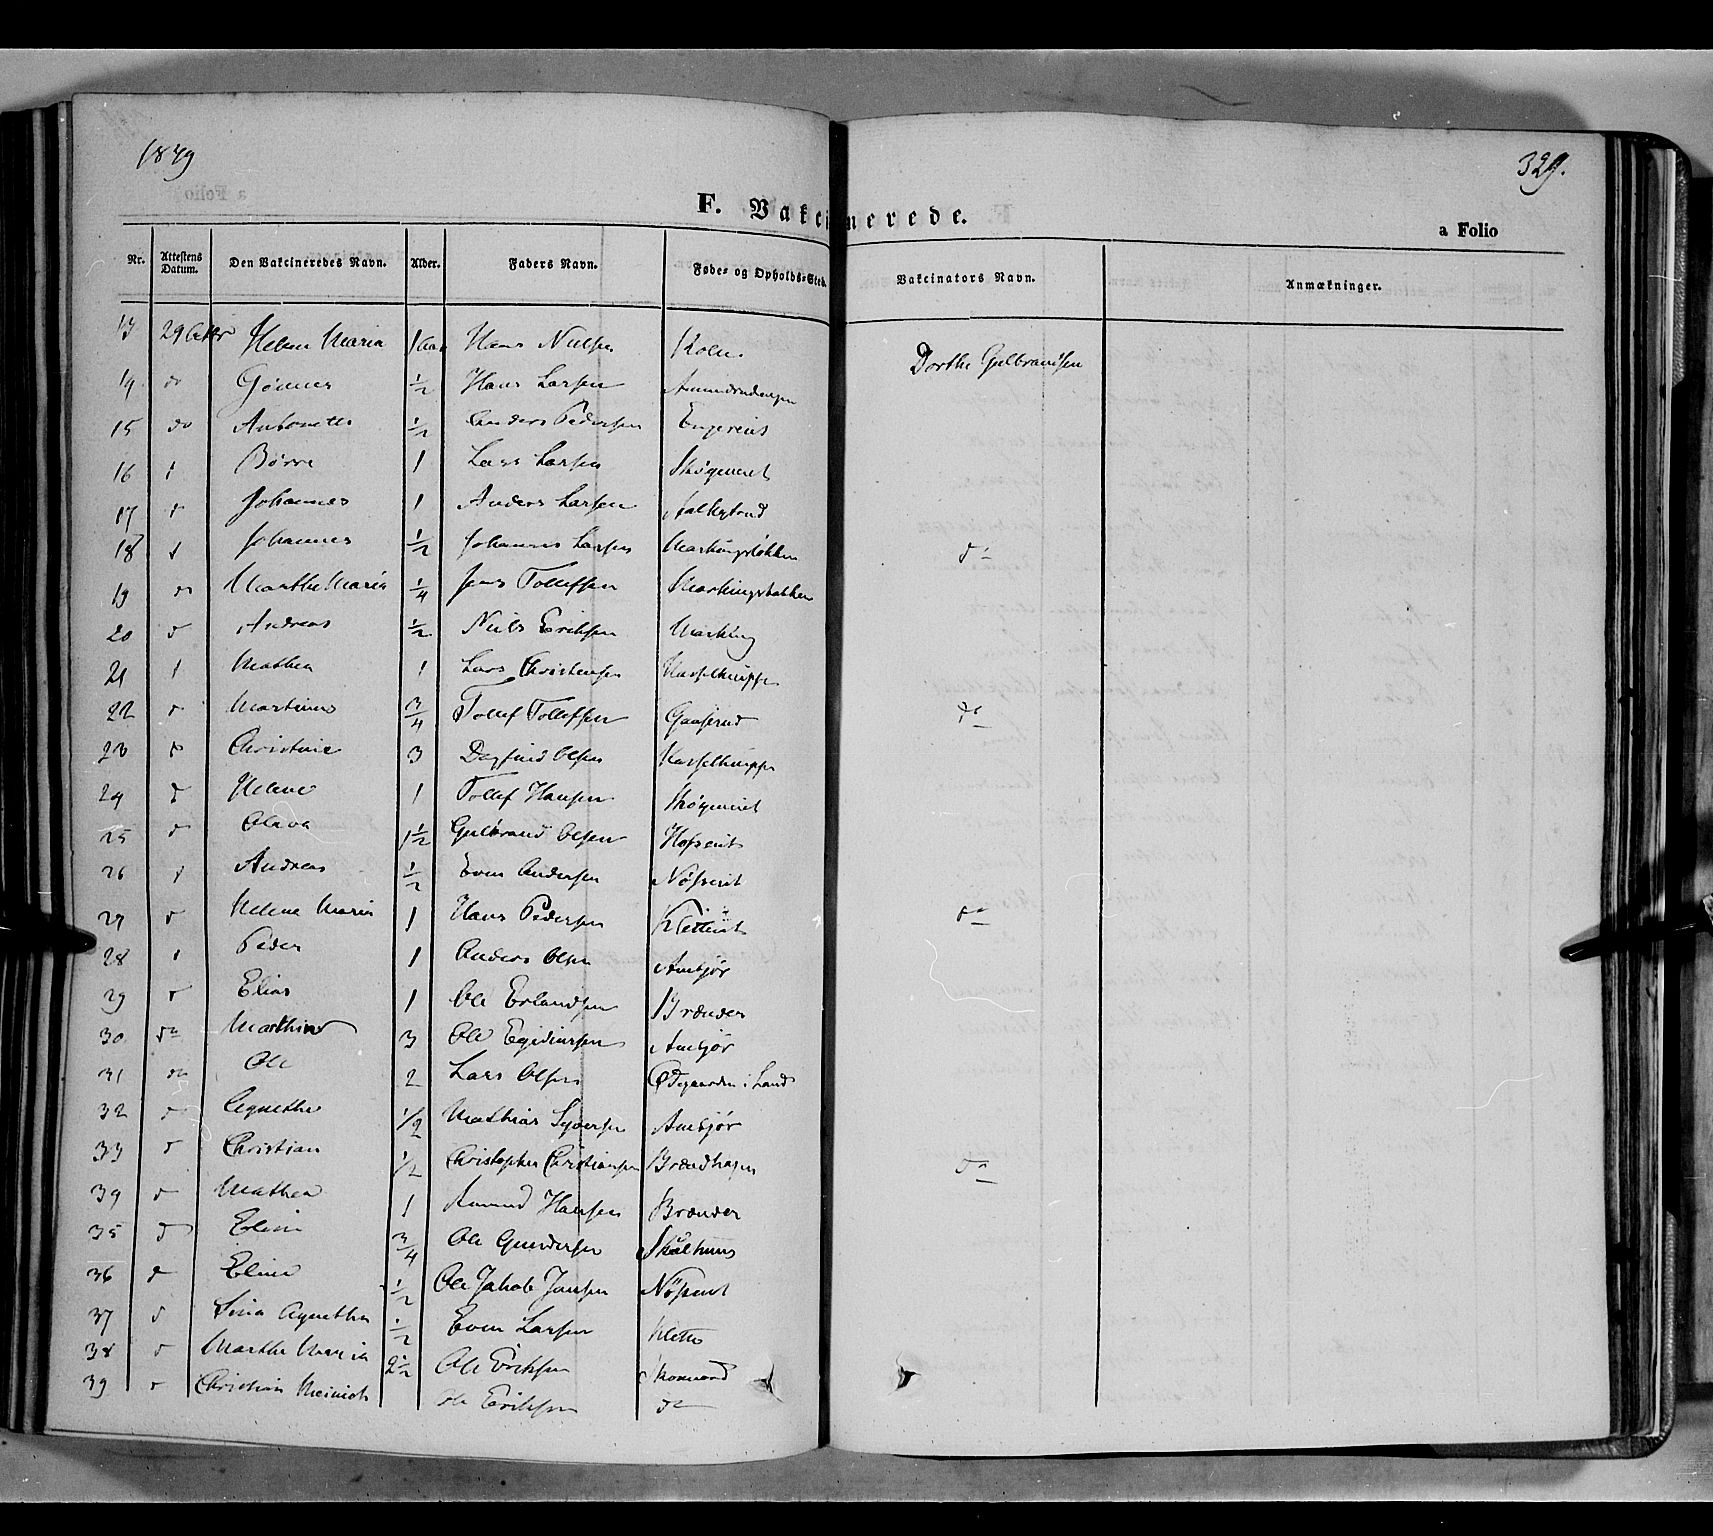 1849
329.
F. Vakcinerede.
a Folio
Nr. Attestens Datum. Den Vakcineredes Navn. Alder. Faders Navn. Føde- og Opholds-Sted. Vakcinators Navn. Anmærkninger.
13 29 Octbr Helene Maria 1 Aar Hans Nielsen Dorthe Gulbrandsen
14 do Gønner 1/2 Hans Larsen
15 do Antonette 1/2 Anders Pedersen
16 Børre 1 Lars Larsen
17 Johannes 1 Anders Larsen
18 Johannes 1/2 Johannes Larsen do
19 do Marthe Maria 1/4 Jens Tollefsen
20 d Andreas 1/2 Niels Eriksen
21 Mathea 1 Lars Christensen Hasselknippe
22 d Martinus 3/4 Tollef Tollefsen Gaaserud do
23 d Christine 3 Dagfind Olsen Hasselknippe
24 d Helene 1 Tollef Hansen
25 d Olava 1 1/2 Gulbrand Olsen
26 Andreas 1/2 Even Andersen
27 d Helene Maria 1 Hans Pedersen do
28 Peder 1 Anders Olsen Ambjør
29 d Elias 1 Ole Erlandsen Brænden
30 do 3 Ole Egidiussen Ambjør
31 do Ole 2 Lars Olsen Ødegaarden i Land
32 d Agnethe 1/2 Mathias Syversen Ambjør
33 d Christian 1/2 Christopher Christiansen Brændhagen do
34 d Mathea 1 Amund Hansen Brænden
35 d 3/4 Ole Gundersen
36 d Eline 1/2 Ole Jakob Jansen
37 d Sina Agnethe 1/2 Even Larsen Klette
38 d Marthe Maria 2 1/2 Ole Eriksen
39 d Christian Ole Eriksen do